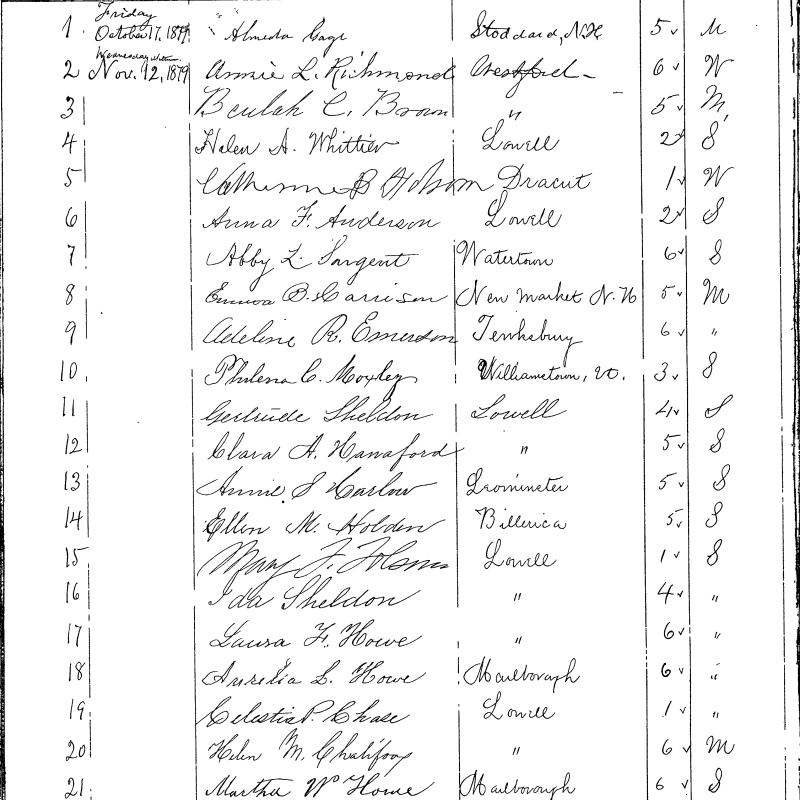 Friday
1 October 17, 1879. " Almeda Gage Stoddard, N.H 5 ✓ M
Wednesday
2 Nov. 12, 1879 Annie L. Richmond Westford - 6 ✓ W
3 Beulah C. Brown " 5 ✓ M
4 Helen A. Whittier Lowell 2 ✓ S
5 Catherine B Dracut 1 ✓ W
6 Anna F. Anderson Lowell 2 ✓ S
7 Abby L. Sargent Watertown 6 ✓ S
8 Emma B. Garrison New market N.H 5 ✓ M
9 Adeline R. Emerson Tewksbury 6 ✓ "
10. Philena C. Moxley Williamstown, Vt. 3 ✓ S
11 Gertrude Sheldon Lowell 4 ✓ S
12 Clara A. Hanaford " 5 ✓ S
13 Annie S Harlow Leominster 5 ✓ S
14 Ellen M. Holden Billerica 5 ✓ S
15 Mary F. Folsom Lowell 1 ✓ S
16 Ida Sheldon " 4 ✓ "
17 Laura F. Howe " 6 ✓ "
18 Aurelia L. Howe Marlborough 6 ✓ "
19 Celestia P. Chase Lowell 1 ✓ "
20 Helen M. Chalifoux " 6 ✓ M
21. Martha W Howe Marlborough 6 ✓ S